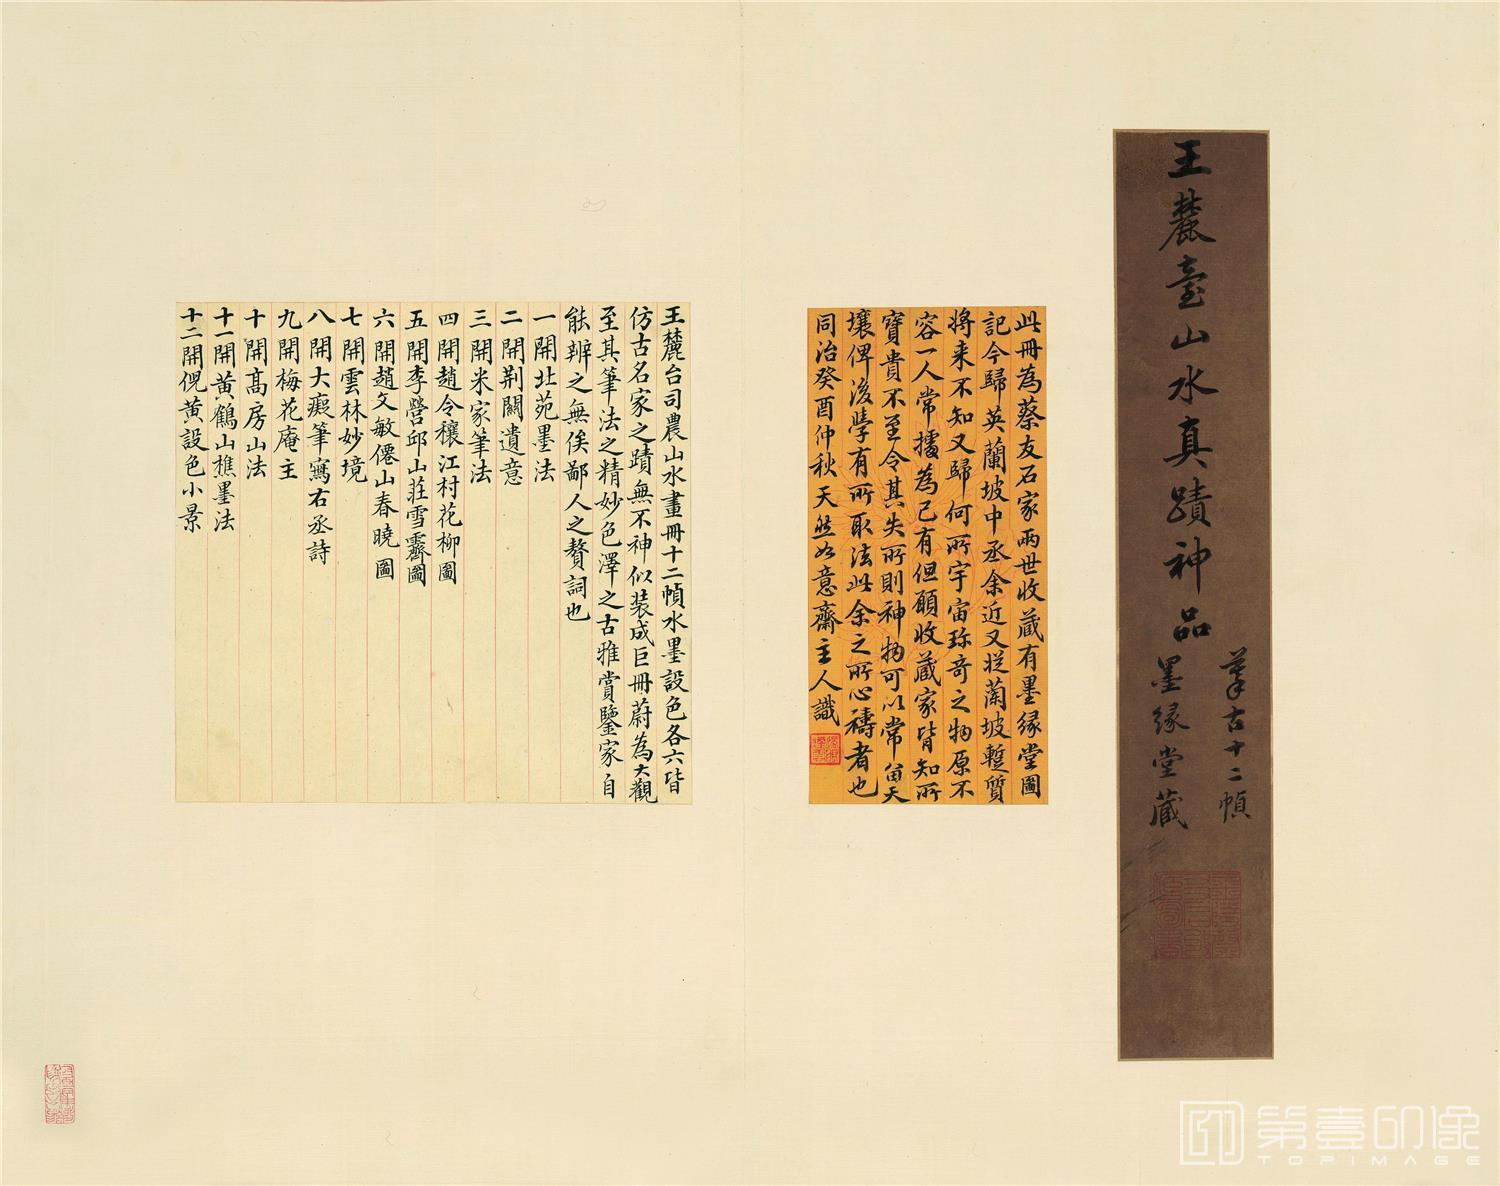 王麓臺山水真蹟神品
摹古十二幀
墨緣堂藏
此冊為蔡友石家兩世收藏有墨緣堂圖
記今歸英蘭坡中丞余近又從蘭坡蹔質
將来不知又歸何所宇宙珎奇之物原不
容一人常擅為己有但願收藏家皆知所
寶貴不至令其失所則神物可以常留天
壤俾後學有所取法此余之所心禱者也
同治癸酉仲秋天然如意齋主人識
王麓台司農山水畫冊十二幀水墨設色各六皆
仿古名家之蹟無不神似装成巨冊蔚為大觀
至其筆法之精妙色澤之古雅賞鑒家自
能辨之無俟鄙人之贅詞也
一開北苑墨法
二開荆關遺意
三開米家筆法
四開趙令穰江村花柳圖
五開李營邱山莊雪霽圖
六開趙文敏僊山春曉圖
七開雲林妙境
八開大癡筆寫右丞詩
九開梅花庵主
十開高房山法
十一開黃鶴山樵墨法
十二開倪黃設色小景
第壹印像
TOPIMAGE